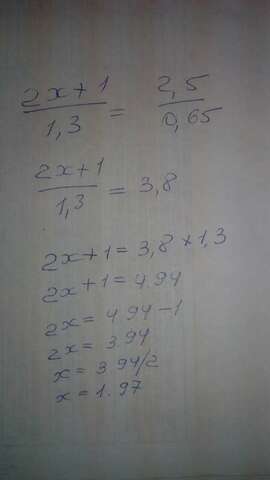 2x+1/1,3 = 2,5/0,65
2x+1/1,3 = 3,8
2x+1 = 3,8 × 1,3
2x+1 = 4.94
2x = 4.94-1
2x = 3.94
x = 3.94/2
x = 1.97